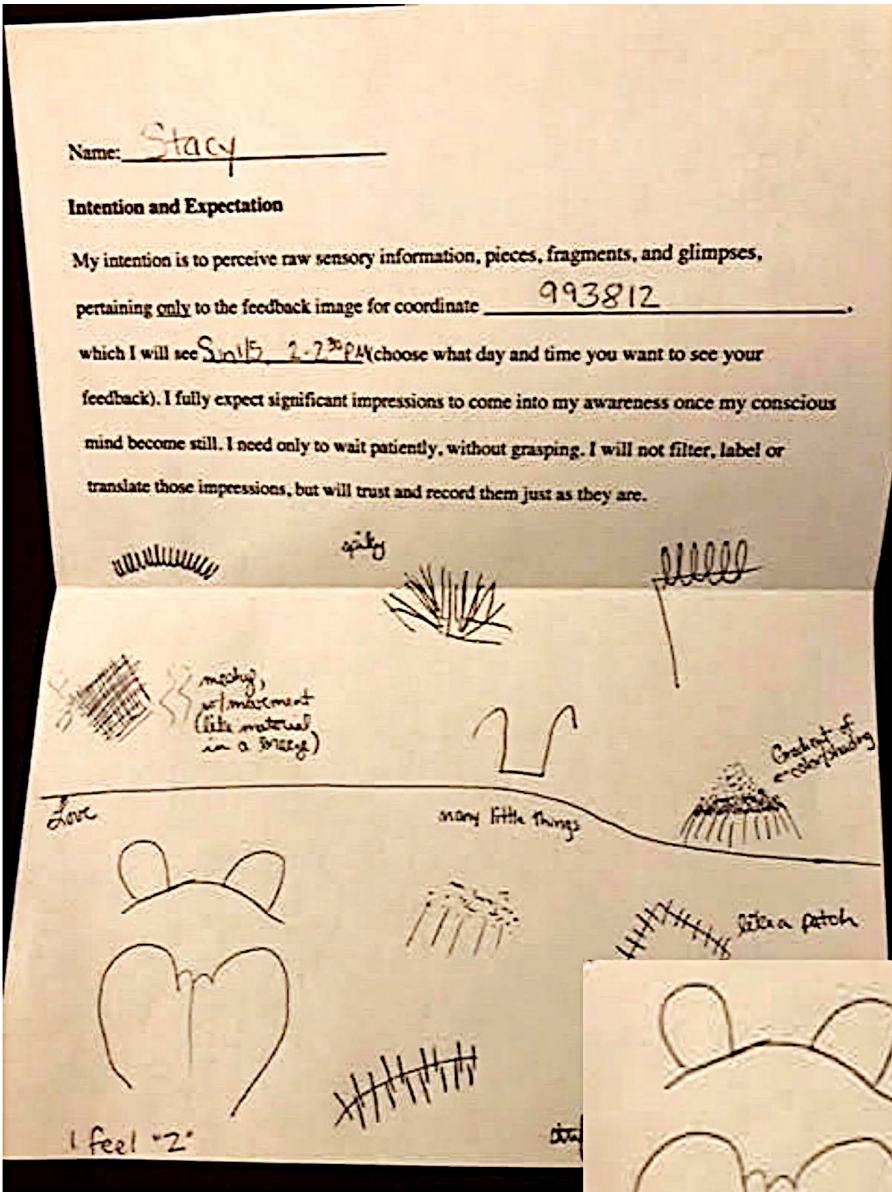 Name: Stacy
Intention and Expectation
My intention is to perceive raw sensory information, pieces, fragments, and glimpses,
pertaining only to the feedback image for coordinate 993812.
which I will see Sun 1/5 2-2:30 PM (choose what day and time you want to see your
feedback). I fully expect significant impressions to come into my awareness once my conscious
mind become still. I need only to wait patiently, without grasping. I will not filter, label or
translate those impressions, but will trust and record them just as they are.
spiky
meshy,
w/ movement
(like material
in a breeze)
Gradient of
color/shading
Love
many little things
like a patch
I feel "2"